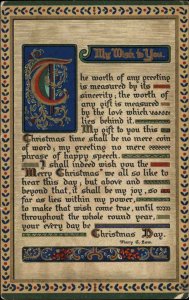 My Wish to You.
The worth of any greeting
is measured by its
sincerity; the worth of
any gift is measured
by the love which
lies behind it.
My gift to you this
Christmas time shall be no mere coin
of word; my greeting no mere
phrase of happy speech.
I shall indeed wish you the
"Merry Christmas" we all so like to
hear this day; but above and
beyond that, it shall be my joy, so
far as lies within my power,
to make that wish come true, until
throughout the whole round year,
your every day be
Christmas Day.